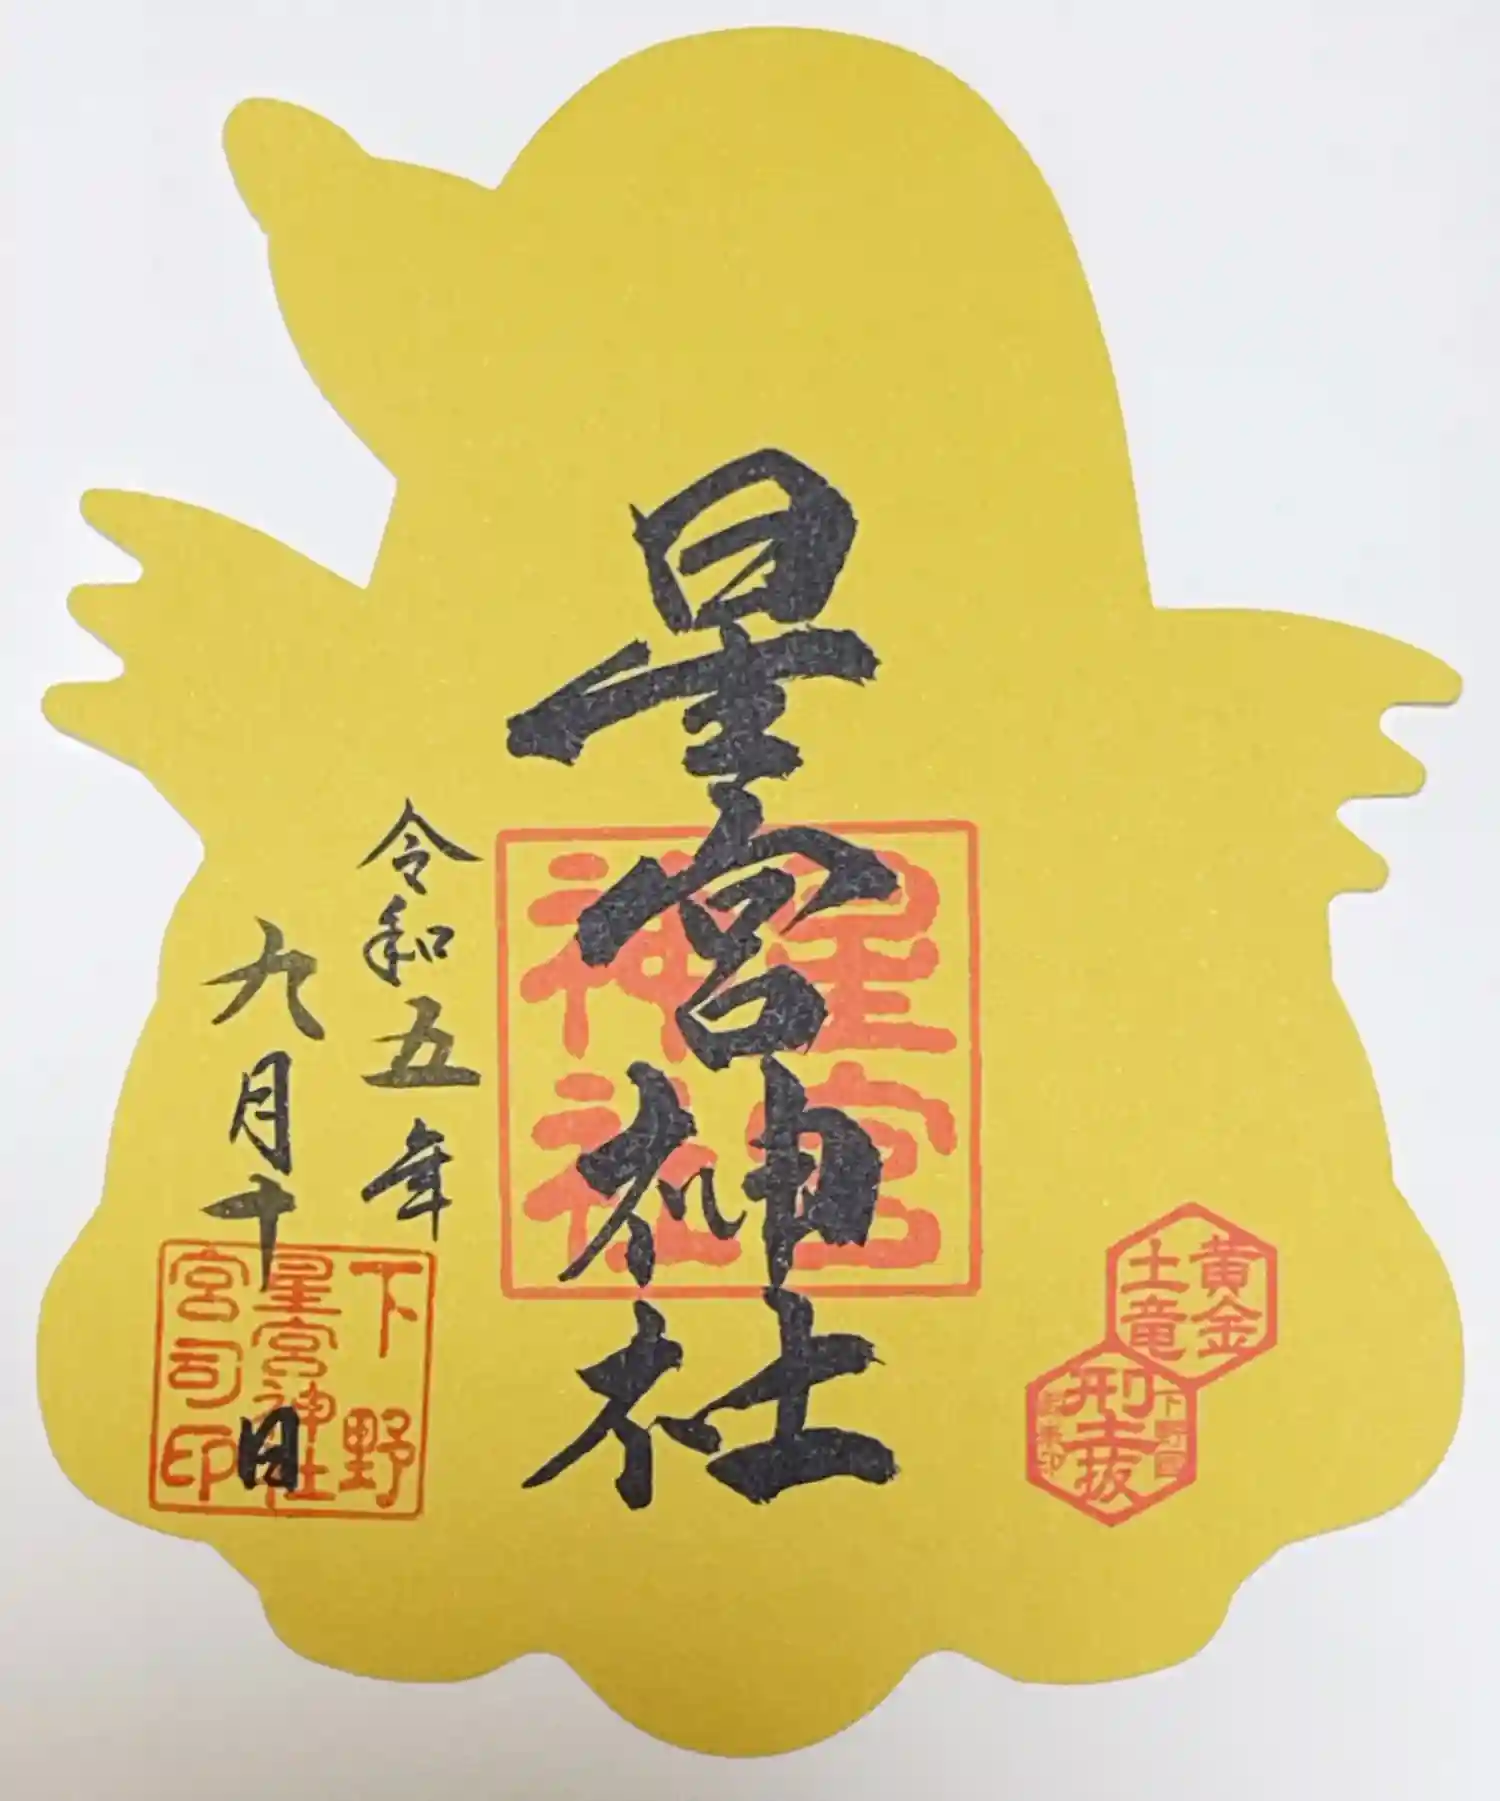 星宮神社
令和五年
九月十日
星宮
神社
下野
星宮神社
宮司印
黄金
土竜
下野国
刑土抜